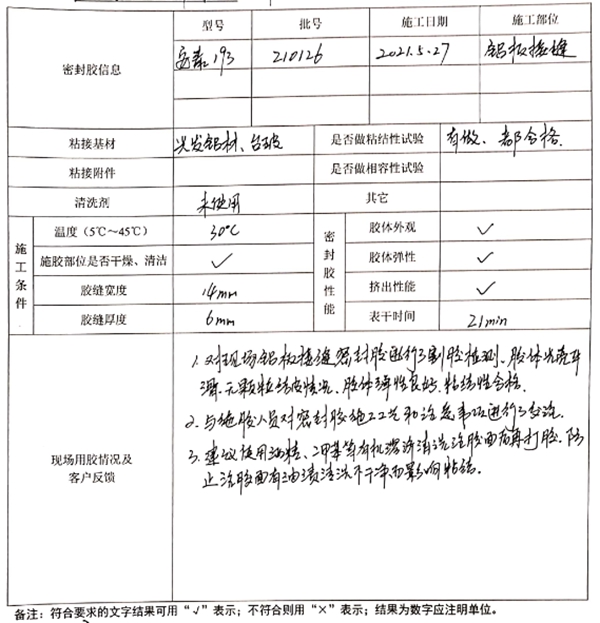 型号 批号 施工日期 施工部位
密封胶信息 安泰193 210126 2021.5.27 铝板接缝
粘接基材 兴发铝材、台玻 是否做粘结性试验 有做、都合格
粘接附件 是否做相容性试验
清洗剂 未使用 其它
施工条件 温度（5℃～45℃） 30℃ 密封胶性能 胶体外观 ✓
施胶部位是否干燥、清洁 ✓ 胶体弹性 ✓
胶缝宽度 14mm 挤出性能 ✓
胶缝厚度 6mm 表干时间 21min
现场用胶情况及
客户反馈
1. 对现场铝板接缝密封胶进行了割胶检测、胶体光亮平
滑、无颗粒结皮情况、胶体弹性良好、粘结性合格.
2. 与施胶人员对密封胶施工工艺和注意事项进行了交流.
3. 建议使用酒精、二甲苯等有机溶济清洗注胶面后再打胶、防
止注胶面有油渍清洗不干净而影响粘结.
备注：符合要求的文字结果可用“√”表示；不符合则用“×”表示；结果为数字应注明单位。